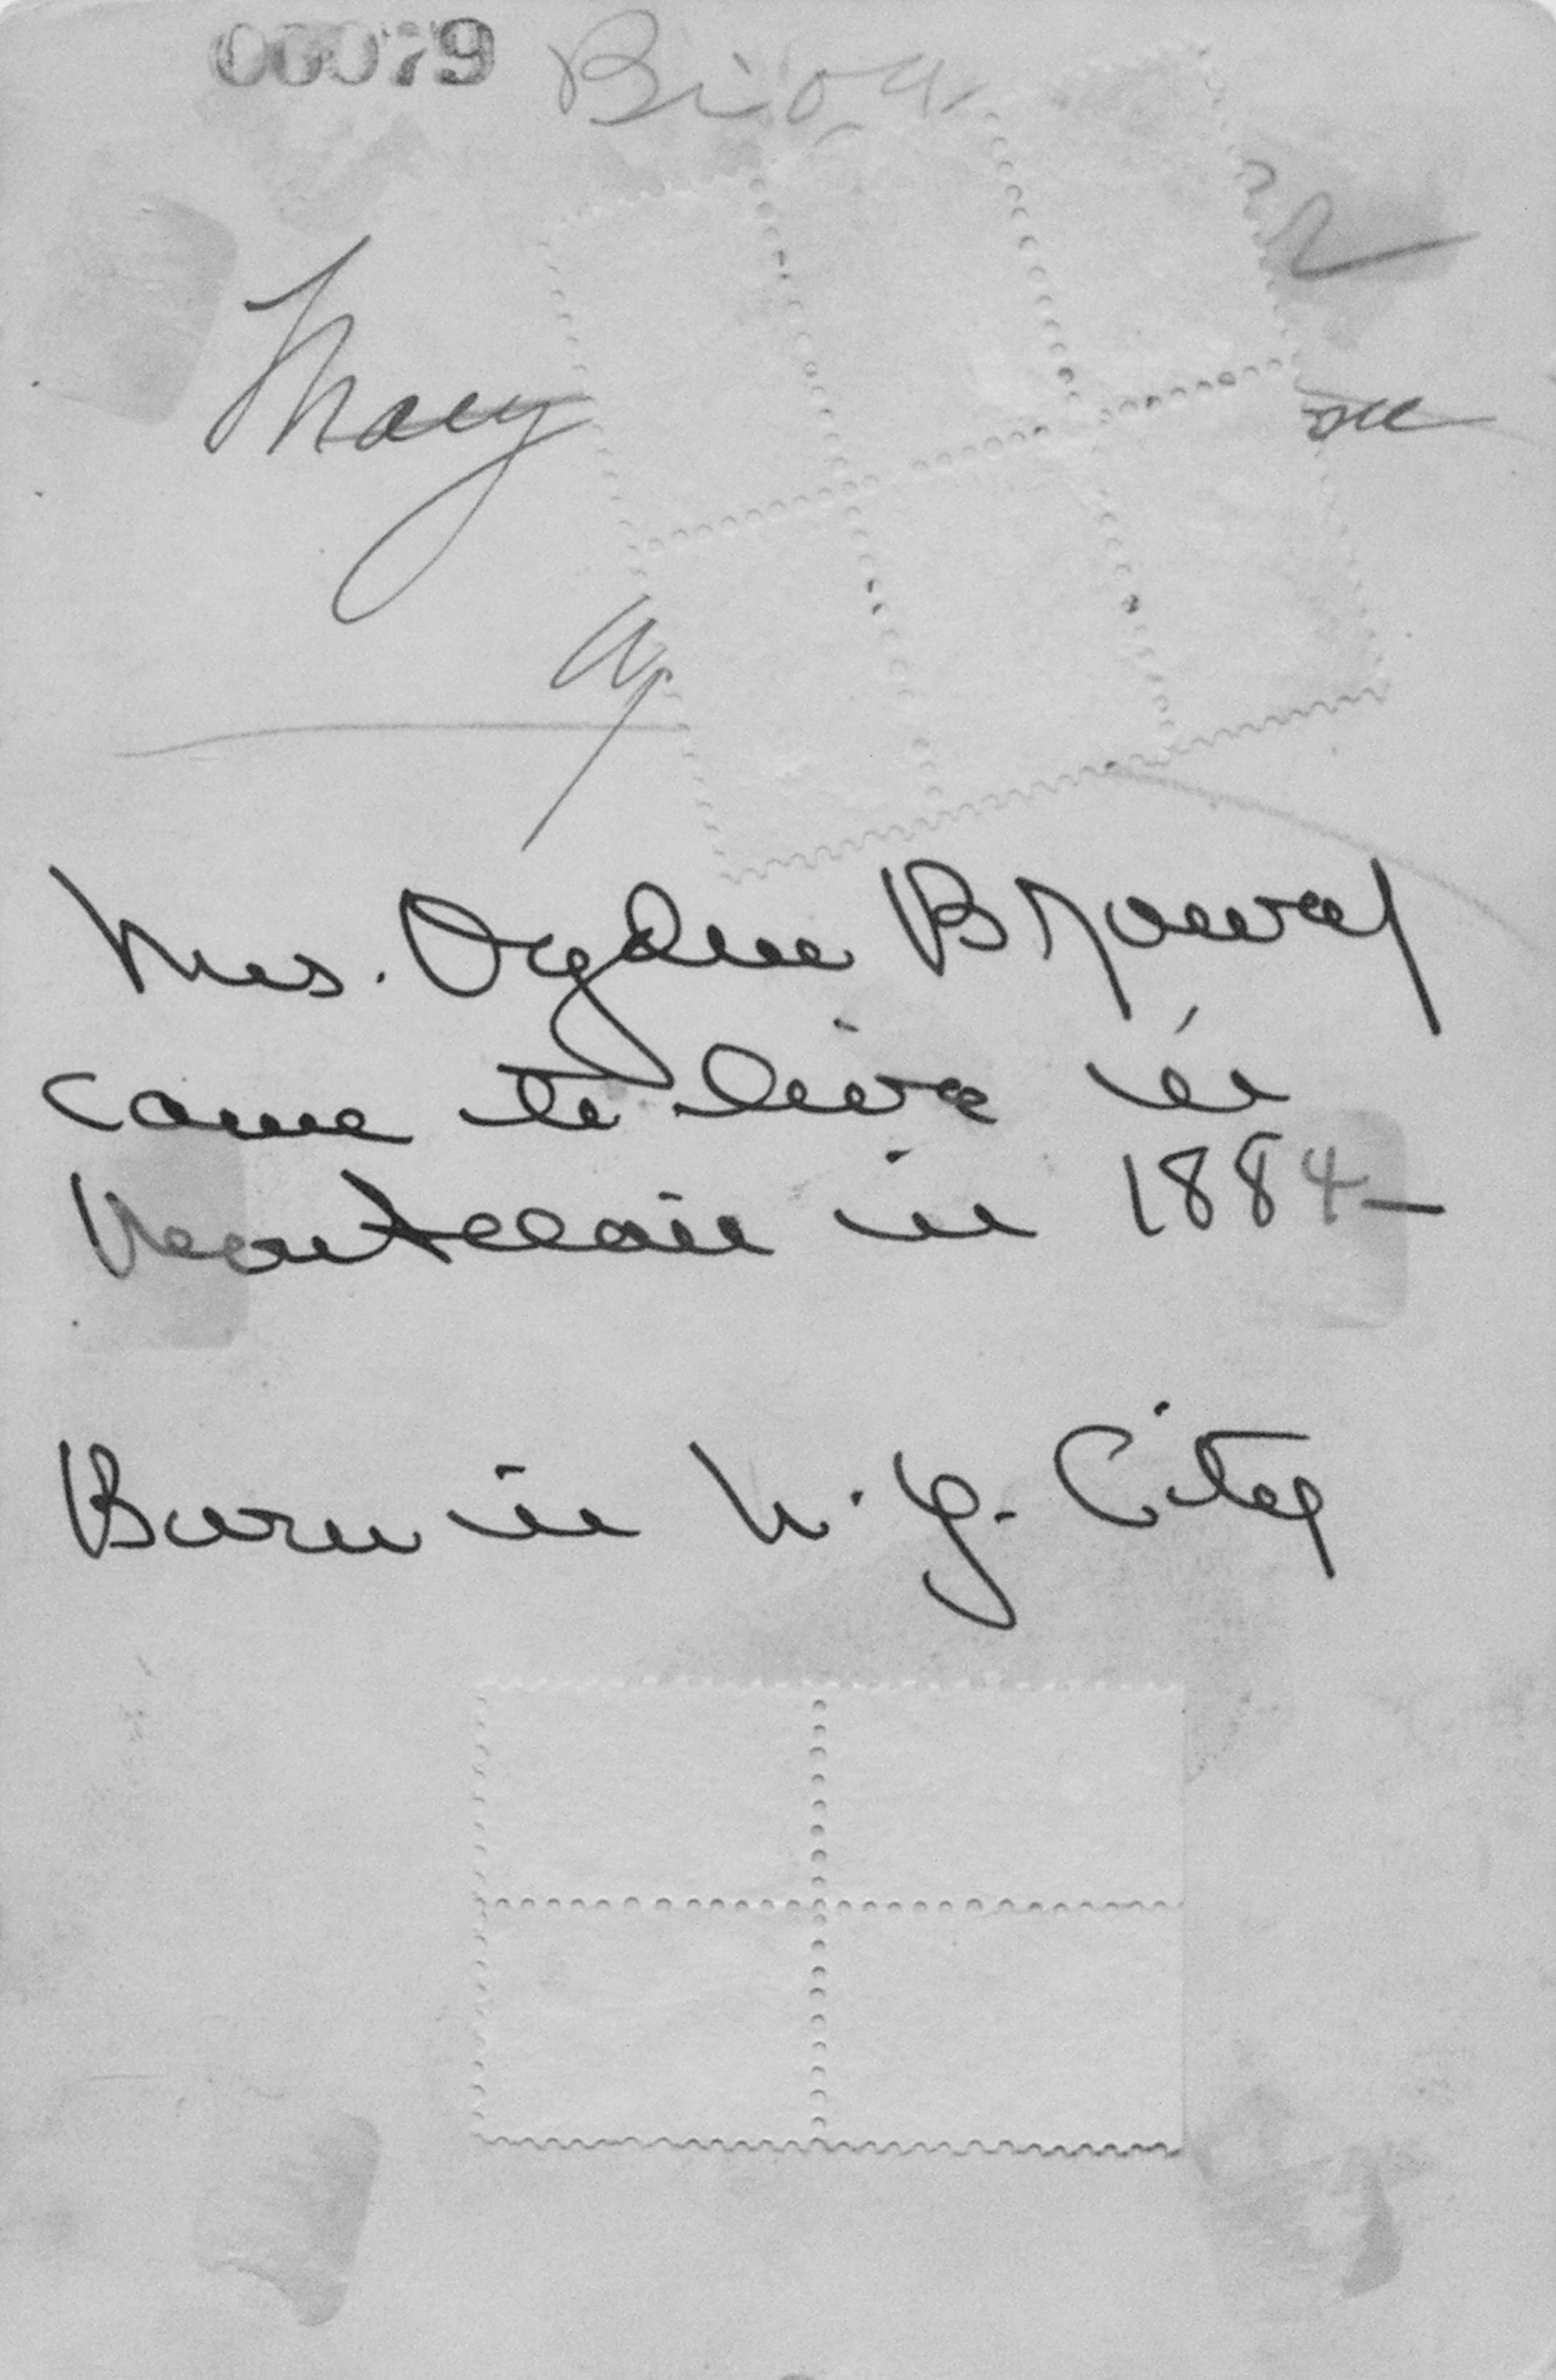 00079
Mary
Mrs. Ogden Brower
came to live in
Montclair in 1884—
Born in N.Y. City